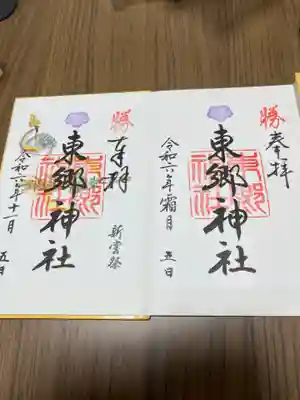 勝
奉拝
東郷神社
令和六年霜月 五日
勝
奉拝
新嘗祭
東郷神社
令和六年十一月 五日